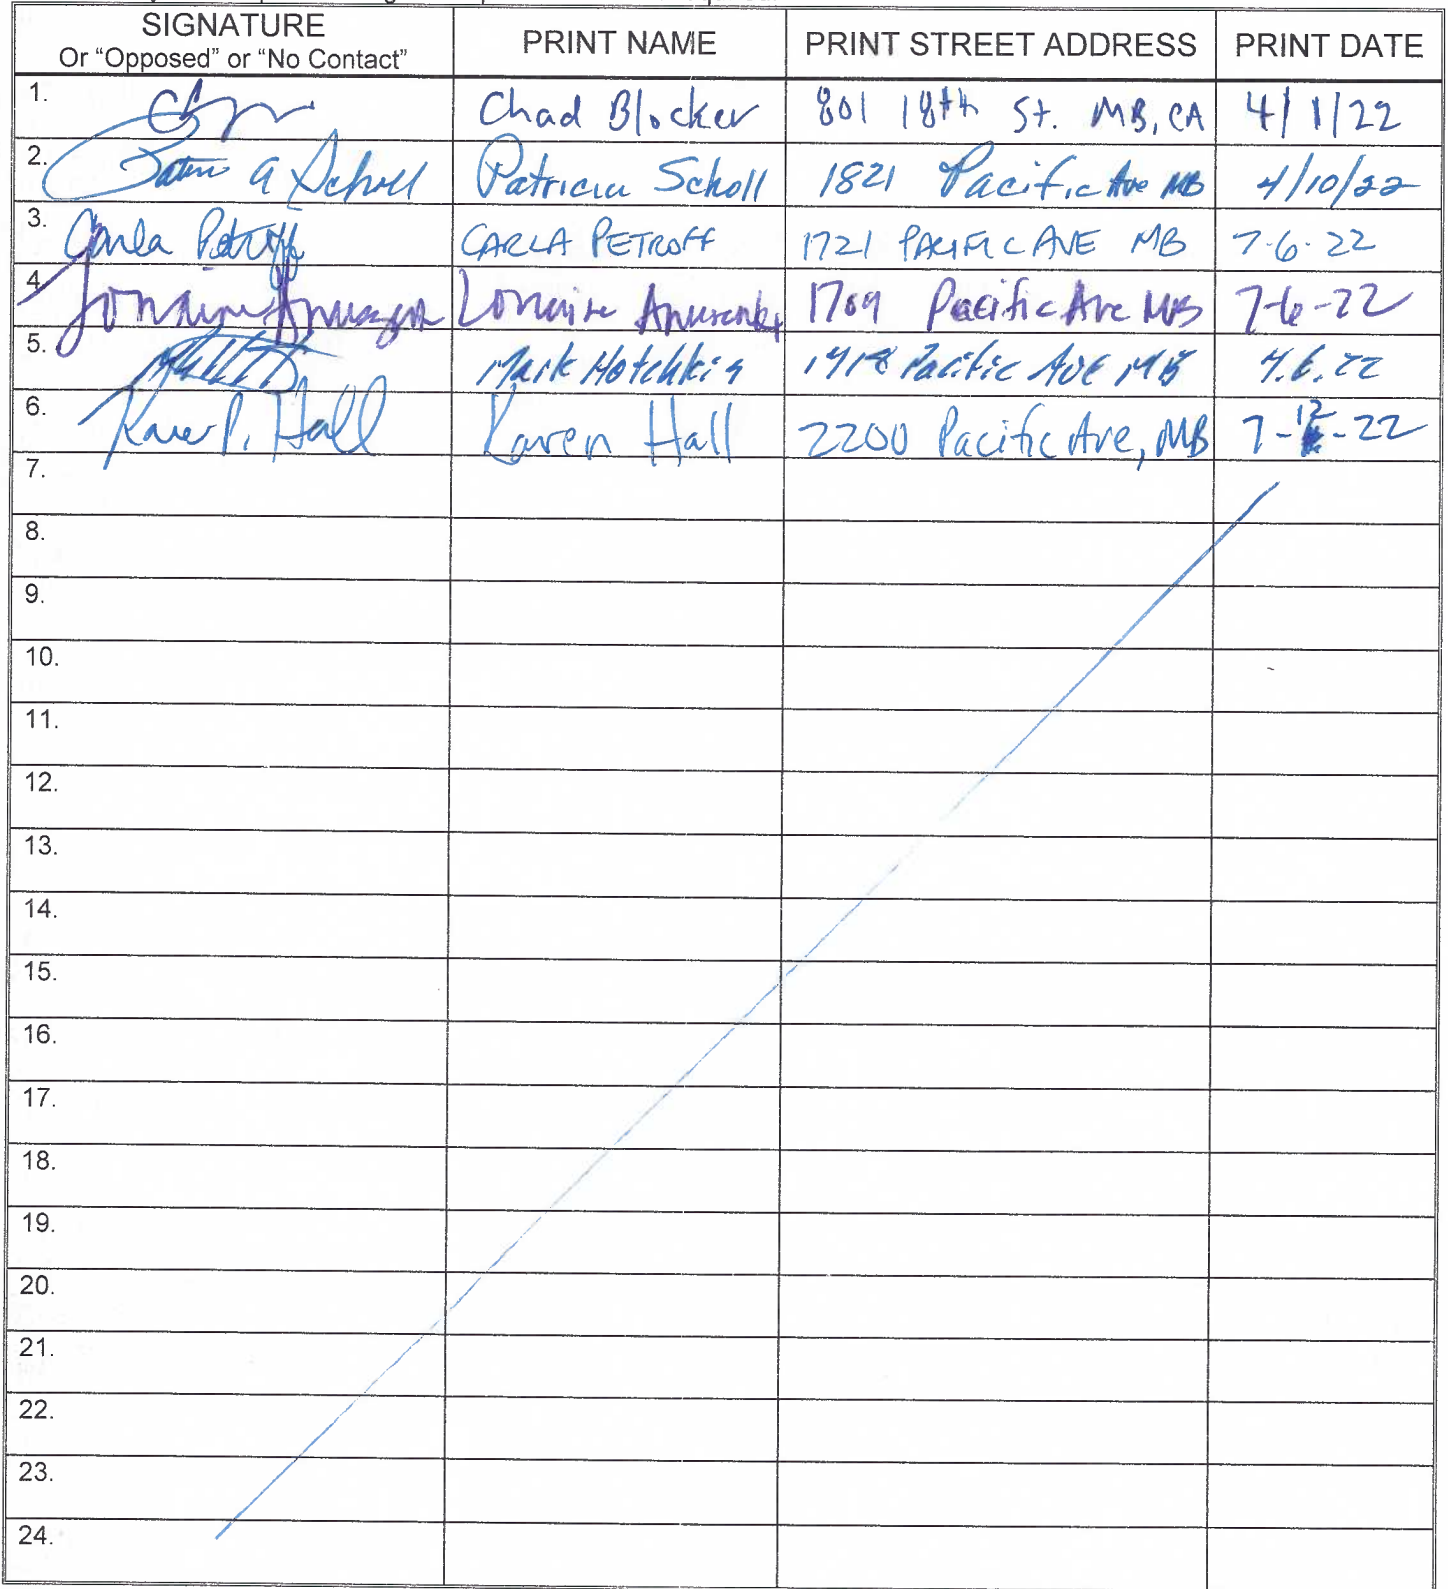 SIGNATURE PRINT NAME PRINT STREET ADDRESS PRINT DATE
Or "Opposed" or "No Contact"
1. Chad Blocker 801 18th St. MB, CA 4/1/22
2. A Scholl Patricia Scholl 1821 Pacific Ave MB 4/10/22
3. Carla Petroff CARLA PETROFF 1721 PACIFIC AVE MB 7-6-22
4. Lorraine Lorraine 1709 Pacific Ave MB 7-6-22
5. Mark Hotchkis Pacific Ave MB
6. Karen P. Hall Karen Hall 2200 Pacific Ave, MB 7-12-22
7.
8.
9.
10.
11.
12.
13.
14.
15.
16.
17.
18.
19.
20.
21.
22.
23.
24.